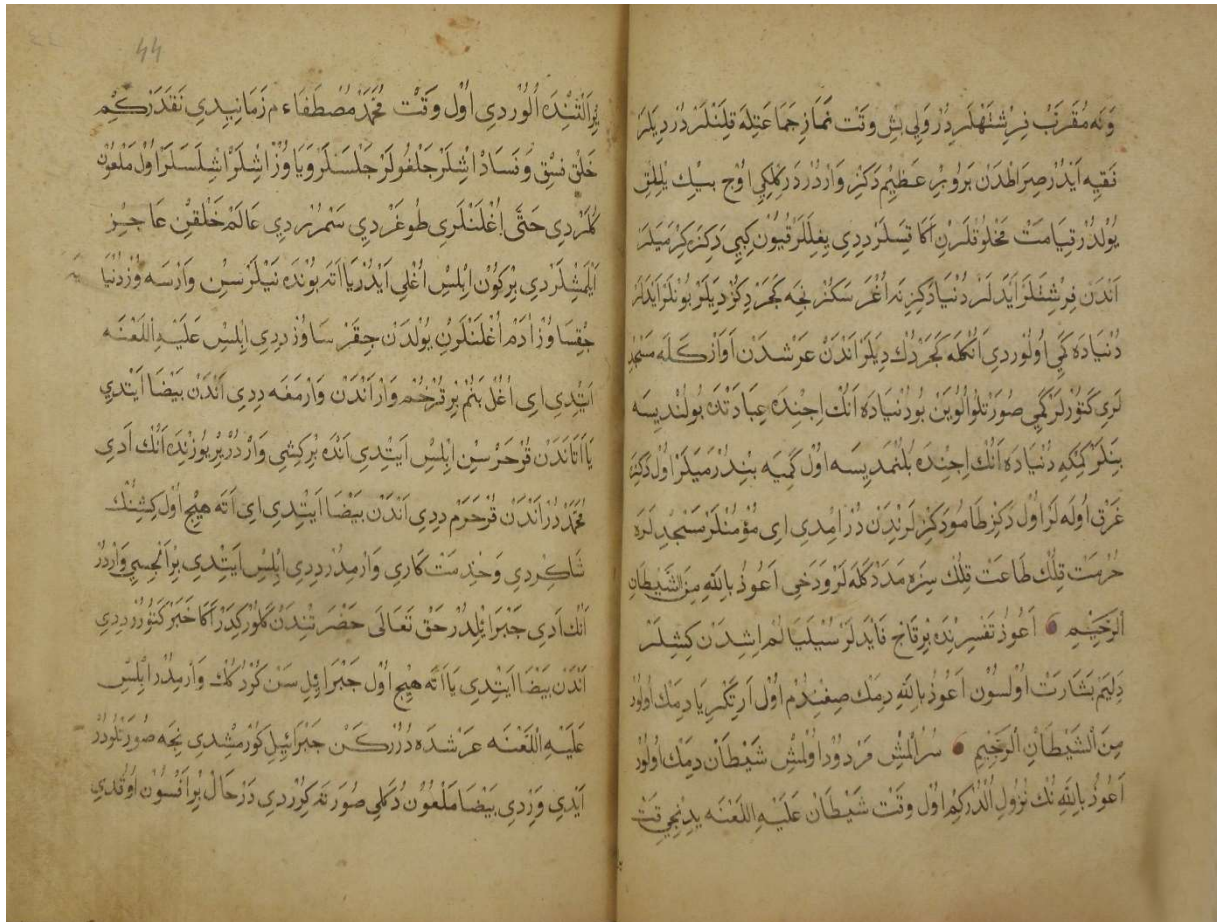 وَنَه مُقَرَّبْ فِرِشْتَهْلَرْدُرْ وَلِي بِشْ وَقْتْ نَمَازِ جَمَاعَتِلَه قِلَنْلَرْدُرْ دِيلَرْ
فَقِيه اَيْدُرْ صِرَاطْدَنْ بَرُو بِرْ عَظِيمْ دَكِزْ وَارْدُرْ دَرِكْلِكِي اُوچْ بِيكْ يِللِقْ
يُولْدُرْ قِيَامَتْ مَخْلُوقْلَرِنْ اَكَا دِدِي قُيُونْ كِبِي دَكِزَه كِرْمَيَلَرْ
اَنْدَنْ فِرِشْتَلَرْ اَيْدَلَرْ دُنْيَا دَكِزِنَه اُغْرَسَكِزْ نِجَه كَچَرْدِكِزْ دِيلَرْ بُونْلَرْ اَيْدَلَرْ
دُنْيَادَه كَمِي اُولُوردِي اَنُكْلَه كَچَرْدُكْ دِيلَرْ اَنْدَنْ عَرْشْدَنْ اَوَازْ كَلَه مَسْجِدْ
لَرِي كَتُورْلَرْ كَمِي صُورَتْلُو اُلُويَنْ بُو دُنْيَادَه اَنُكْ اِچِنْدَه عِبَادَتْدَه بُولُنْدِيسَه
بِنَلَرْ كِمْكِه دُنْيَادَه اَنُكْ اِچِنْدَه بُلُنْمَدِيسَه اُولْ كَمِيَه بِنْدُرْمَيَلَرْ اُولْ دَكِزَه
غَرْقْ اُولَه لَرْ اُولْ دَكِزْ طَامُو دَكِزْلَرِنْدَنْ دُرْ اِمْدِي اَيْ مُؤْمِنْلَرْ مَسْجِدْلَرَه
حُرْمَتْ قِلُكْ طَاعَتْ قِلُكْ سِزَه مَدَدْ كَلَه لَرْ وَدَخِي اَعُوذُ بِاللّٰهِ مِنَ الشَّيْطَانِ
الرَّجِيمِ اَعُوذُ تَفْسِيرِنْدَه بِرْ قَاچْ فَايْدَلَرْ سُيْلَيَالُمْ اِشِدَنْ كِشِلَرْ
دِلِيمْ بَشَارَتْ اُولْسُونْ اَعُوذُ بِاللّٰهِ دِمَكْ صِغِنْدُمْ اُولْ اَرْتَكْرِيَا دِمَكْ اُولُورْ
مِنَ الشَّيْطَانِ الرَّجِيمِ سُرُلْمِشْ مَرْدُودْ اُولْمِشْ شَيْطَانْ دِمَكْ اُولُورْ
اَعُوذُ بِاللّٰهِ نُكْ نُزُولِ اُلْدُرْكِمْ اُولْ وَقْتْ شَيْطَانْ عَلَيْهِ اللَّعْنَه يِدِنْجِي قَتْ
44
يِرْ اَلْتِنْدَه اُلُوردِي اُولْ وَقْتْ مُحَمَّدْ مُصْطَفَاء م زَمَانِيدِي نَقَدَرْكِمْ
خَلْقْ فِسْقْ وَفَسَادْ اِشْلَرْ وَيَا وُزْ اِشْلَرْ اِشْلَسَلَرْ اُولْ مَلْعُونْ
كُلَرْدِي حَتَّى اُغْلَنْلَرِي طُوغَرْدِي سَمُرُرْدِي عَالَمْ خَلْقِنْ عَاجِزْ
اَيْلَمِشْلَرْدِي بِرْ كُونْ اِبْلِسْ اُغْلِي اَيْدُرْ يَا اَتَه بُونْدَه نَيْلَرْسِنْ وَارْسَه وُزْ دُنْيَا
چِقْسَاوُزْ اٰدَمْ اُغْلَنْلَرِنْ يُولْدَنْ چِقَرْسَاوُزْ دِدِي اِبْلِسْ عَلَيْهِ اللَّعْنَه
اَيْتِدِي اَيْ اُغُلْ بَنُمْ بِرْ قُرْخُمْ وَارْ اَنْدَنْ وَارْمَغَه دِدِي اَنْدَنْ بَيْضَا اَيْتِدِي
يَا اَتَا نَدَنْ قُرْخَرْسِنْ اِبْلِسْ اَيْتِدِي اَنْدَه بِرْ كِشِي وَارْدُرْ يِرْ يُوزِنْدَه اَنُكْ اَدِي
مُحَمَّدْدُرْ اَنْدَنْ قُرْخَرَمْ دِدِي اَنْدَنْ بَيْضَا اَيْتِدِي اَيْ اَتَه هِيچْ اُولْ كِشِنُكْ
شَاكِرْدِي وَخِذْمَتْكَارِي وَارْمِدُرْ دِدِي اِبْلِسْ اَيْتِدِي وَارْدُرْ
اَنُكْ اَدِي جَبْرَائِلْدُرْ حَقْ تَعَالَى حَضْرَتِنْدَنْ كَلُورْ كِدَرْ اَكَا خَبَرْ كَتُورُرْ دِدِي
اَنْدَنْ بَيْضَا اَيْتِدِي يَا اَتَه هِيچْ اُولْ جَبْرَائِلِ سَنْ كُرْدُكُكْ وَارْمِدُرْ اِبْلِسْ
عَلَيْهِ اللَّعْنَه عَرْشْدَه دُرُرْكَنْ جَبْرَائِيلِ كُورْمِشْدِي نِجَه صُورَتْلُودُرْ
اَيْدِي وَرْدِي بَيْضَا مَلْعُونْ دُكَلِي صُورَتَه كِرُرْدِي دَرْحَالْ بُو اَفْسُونْ اُوقُدِي